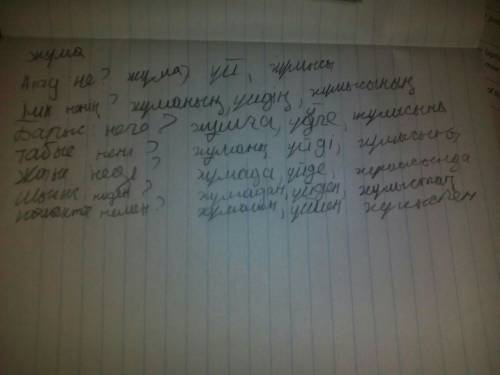 жума
Атау не? жума, үй, жұмысы
Ілік ненің? жуманың, үйдің, жұмысының
Барыс неге? жумаға, үйге, жұмысына
табыс нені? жуманы үйді, жұмысын
Жатыс неде? жумада, үйде, жұмысында
Шығыс неден? жумадан, үйден, жұмыстан
көмектес немен? жумамен, үймен жұмыспен